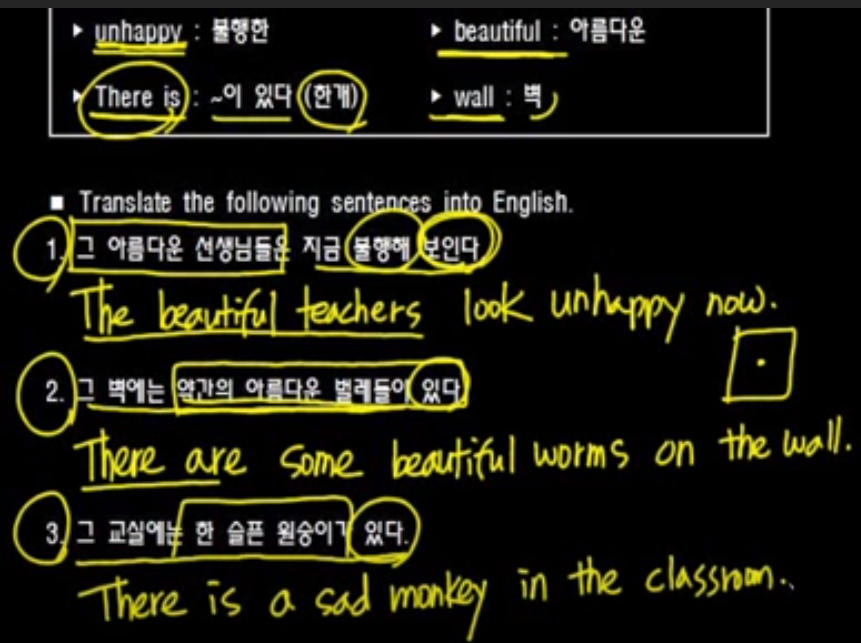 ▶ unhappy : 불행한 ▶ beautiful : 아름다운
▶ There is : ~이 있다 (한개) ▶ wall : 벽
■ Translate the following sentences into English.
1. 그 아름다운 선생님들은 지금 불행해 보인다.
The beautiful teachers look unhappy now.
2. 그 벽에는 약간의 아름다운 벌레들이 있다.
There are some beautiful worms on the wall.
3. 그 교실에는 한 슬픈 원숭이가 있다.
There is a sad monkey in the classroom..